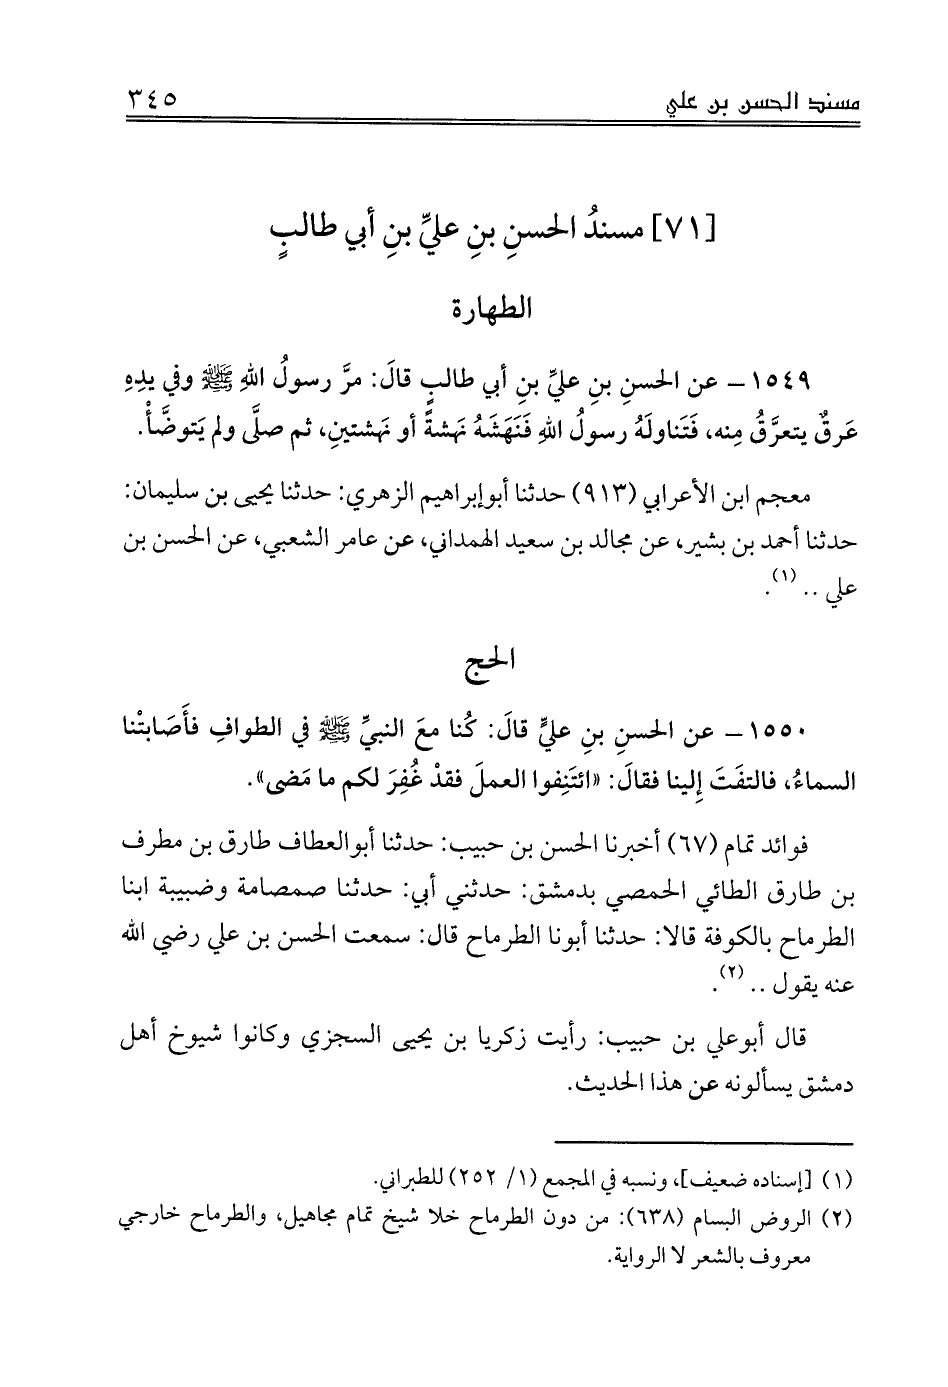 مسند الحسن بن علي ٣٤٥
[٧١] مسندُ الحسنِ بنِ عليِّ بنِ أبي طالبٍ
الطهارة
١٥٤٩ - عن الحسنِ بنِ عليِّ بنِ أبي طالبٍ قالَ: مرَّ رسولُ اللهِ ﷺ وفي يدِهِ
عَرقٌ يتعرَّقُ مِنه، فَتَناولَهُ رسولُ اللهِ فَنَهَشَهُ نَهشةً أو نَهشتينِ، ثم صلَّى ولم يَتوضَّأْ.
معجم ابن الأعرابي (٩١٣) حدثنا أبوإبراهيم الزهري: حدثنا يحيى بن سليمان:
حدثنا أحمد بن بشير، عن مجالد بن سعيد الهمداني، عن عامر الشعبي، عن الحسن بن
علي .. (١).
الحج
١٥٥٠ - عن الحسنِ بنِ عليٍّ قالَ: كُنا معَ النبيِّ ﷺ في الطوافِ فأَصَابتْنا
السماءُ، فالتفَتَ إِلينا فقالَ: «ائتَنِفوا العملَ فقدْ غُفِرَ لكم ما مَضى».
فوائد تمام (٦٧) أخبرنا الحسن بن حبيب: حدثنا أبوالعطاف طارق بن مطرف
بن طارق الطائي الحمصي بدمشق: حدثني أبي: حدثنا صمصامة وضبيبة ابنا
الطرماح بالكوفة قالا: حدثنا أبونا الطرماح قال: سمعت الحسن بن علي رضي الله
عنه يقول .. (٢).
قال أبوعلي بن حبيب: رأيت زكريا بن يحيى السجزي وكانوا شيوخ أهل
دمشق يسألونه عن هذا الحديث.
(١) [إسناده ضعيف]، ونسبه في المجمع (١/ ٢٥٢) للطبراني.
(٢) الروض البسام (٦٣٨): من دون الطرماح خلا شيخ تمام مجاهيل، والطرماح خارجي
معروف بالشعر لا الرواية.